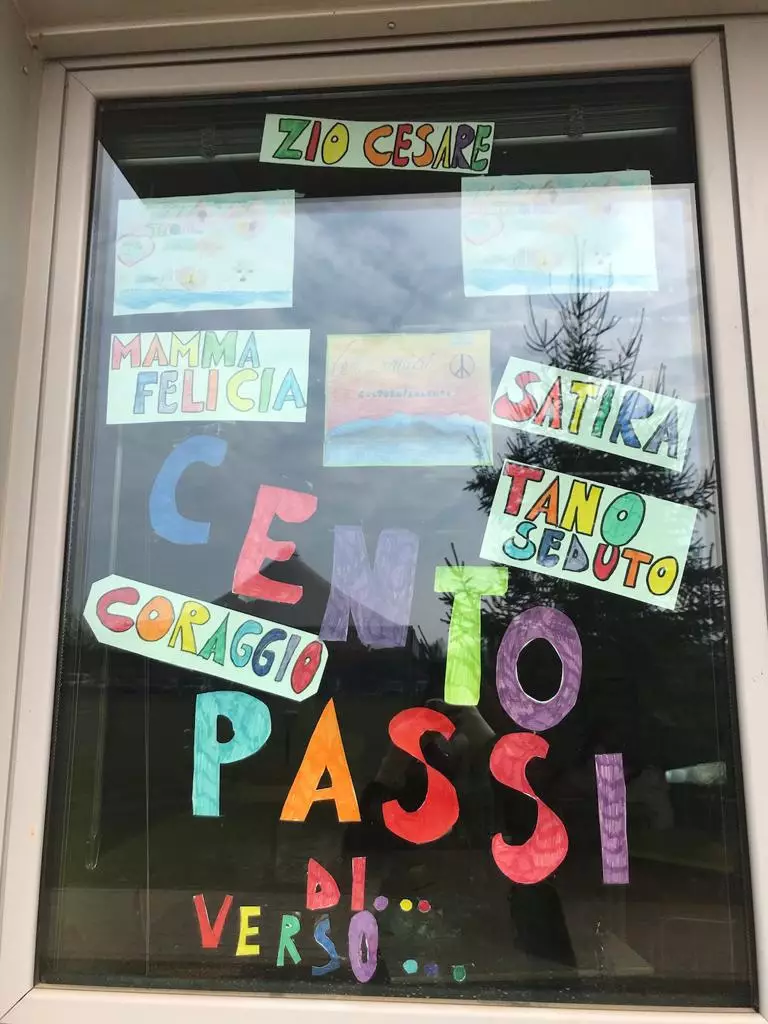 ZIO CESARE
MAMMA
FELICIA
SATIRA
TANO
SEDUTO
CENTO
CORAGGIO
PASSI
DI...
VERSO...